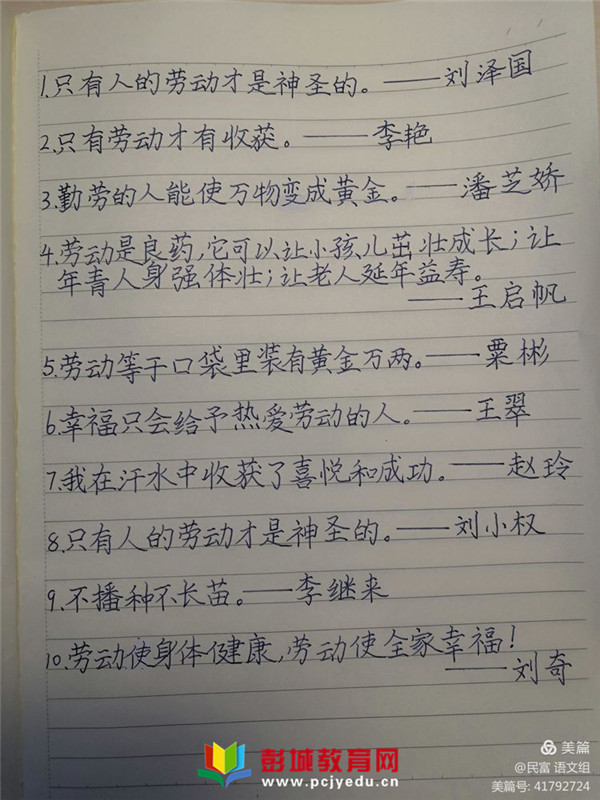 1.只有人的劳动才是神圣的。——刘泽国
2.只有劳动才有收获。——李艳
3.勤劳的人能使万物变成黄金。——潘芝娇
4.劳动是良药,它可以让小孩儿茁壮成长;让
年青人身强体壮;让老人延年益寿。
——王启帆
5.劳动等于口袋里装有黄金万两。——粟彬
6.幸福只会给予热爱劳动的人。——王翠
7.我在汗水中收获了喜悦和成功。——赵玲
8.只有人的劳动才是神圣的。——刘小权
9.不播种不长苗。——李继来
10.劳动使身体健康,劳动使全家幸福!
——刘奇
彭城教育网
www.pcjyedu.cn
美篇
@民富 语文组
美篇号: 41792724